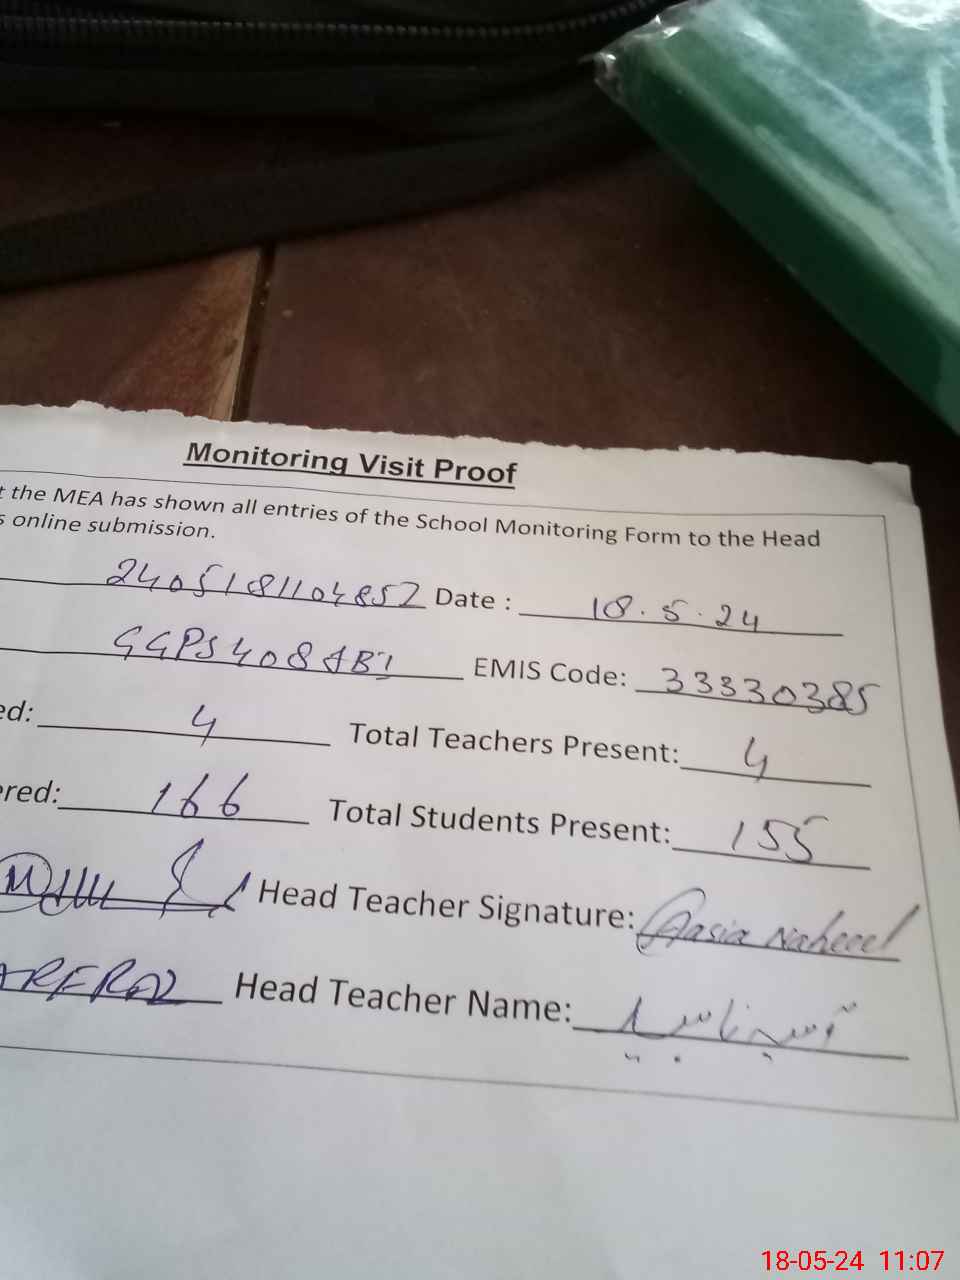 Monitoring Visit Proof
t the MEA has shown all entries of the School Monitoring Form to the Head
s online submission.
2405181104852 Date : 18.5.24
GGPS 408 JB1 EMIS Code: 33330385
ed: 4 Total Teachers Present: 4
ered: 166 Total Students Present: 155
Head Teacher Signature: Aasia Naheed
ARFRAZ Head Teacher Name:
18-05-24 11:07